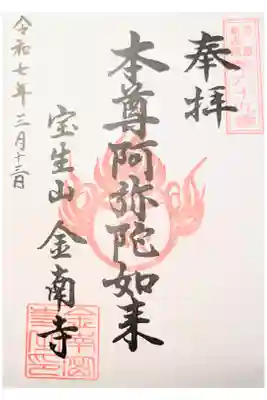 奉拝
本尊阿弥陀如来
宝生山 金南寺
令和七年三月十三日